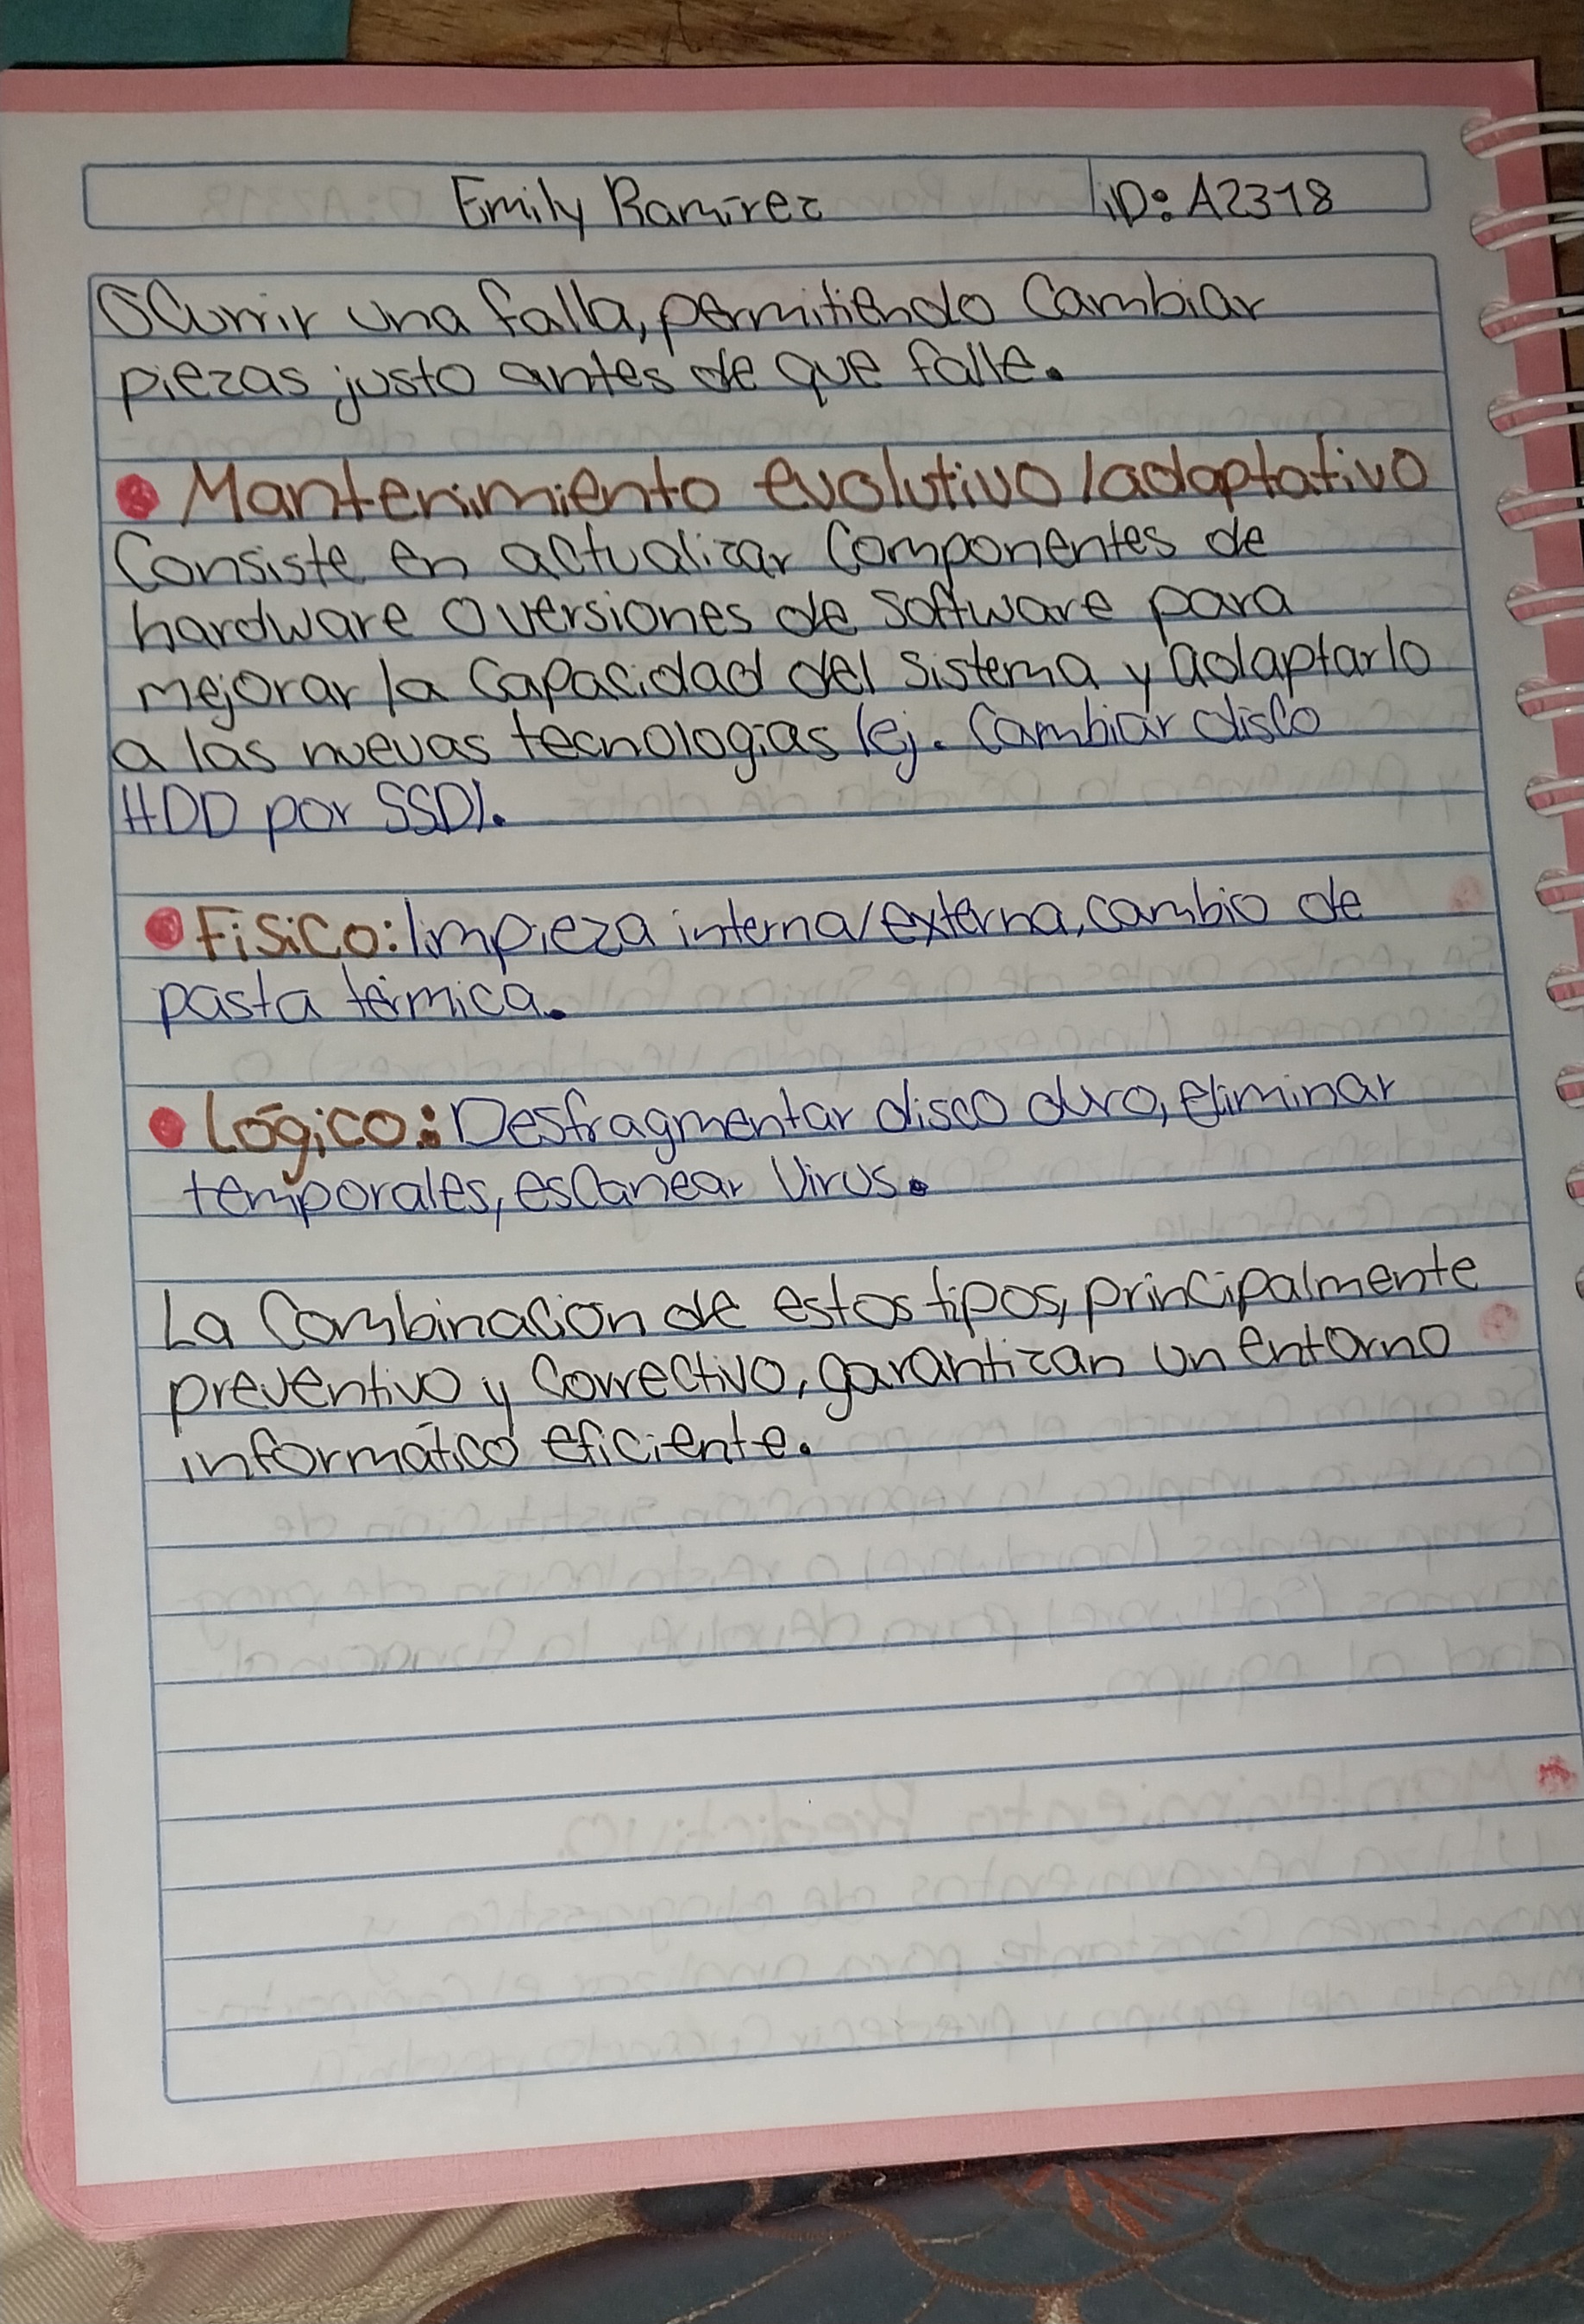 Emily Ramírez
ID: A2318
Ocurrir una falla, permitiendo Cambiar
piezas justo antes de que falle.
Mantenimiento evolutivo /adaptativo
Consiste en actualizar Componentes de
hardware o versiones de Software para
mejorar la Capacidad del sistema y adaptarlo
a las nuevas tecnologías (ej. Cambiar disco
HDD por SSD).
Físico: limpieza interna/externa, cambio de
pasta térmica.
Lógico: Desfragmentar disco duro, eliminar
temporales, escanear Virus.
La Combinación de estos tipos, principalmente
preventivo y Correctivo, garantizan un entorno
informático eficiente.